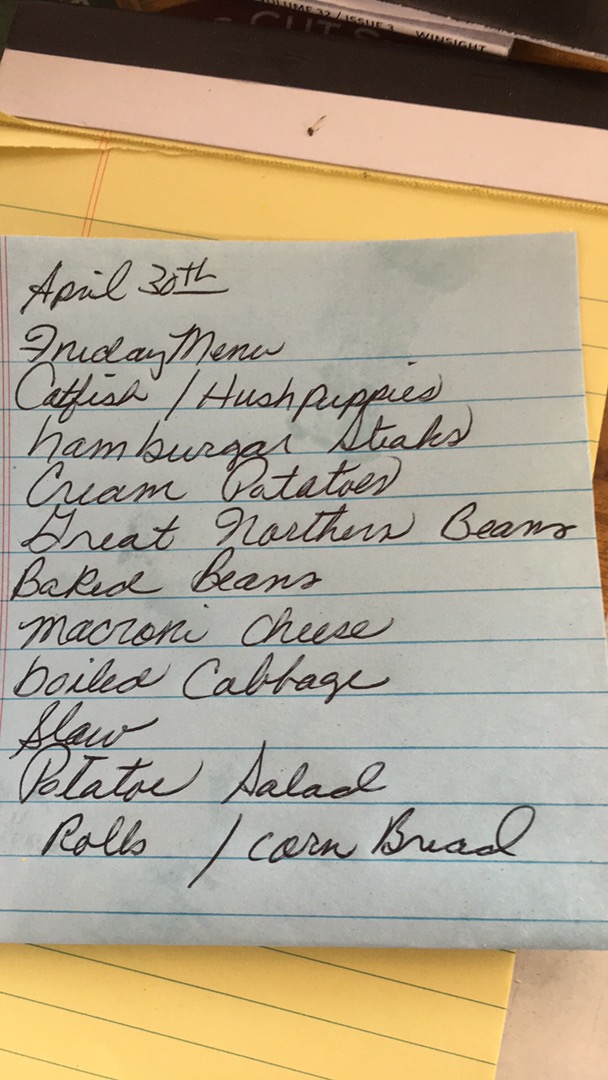 VOLUME 32 / ISSUE 3 WINSIGHT
CUTS
April 30th
Friday Menu
Catfish / Hushpuppies
hamburgar Steaks
Cream Potatoes
Great Northern Beans
Baked Beans
Macroni Cheese
boiled Cabbage
Slaw
Potatoe Salad
Rolls / Corn Bread